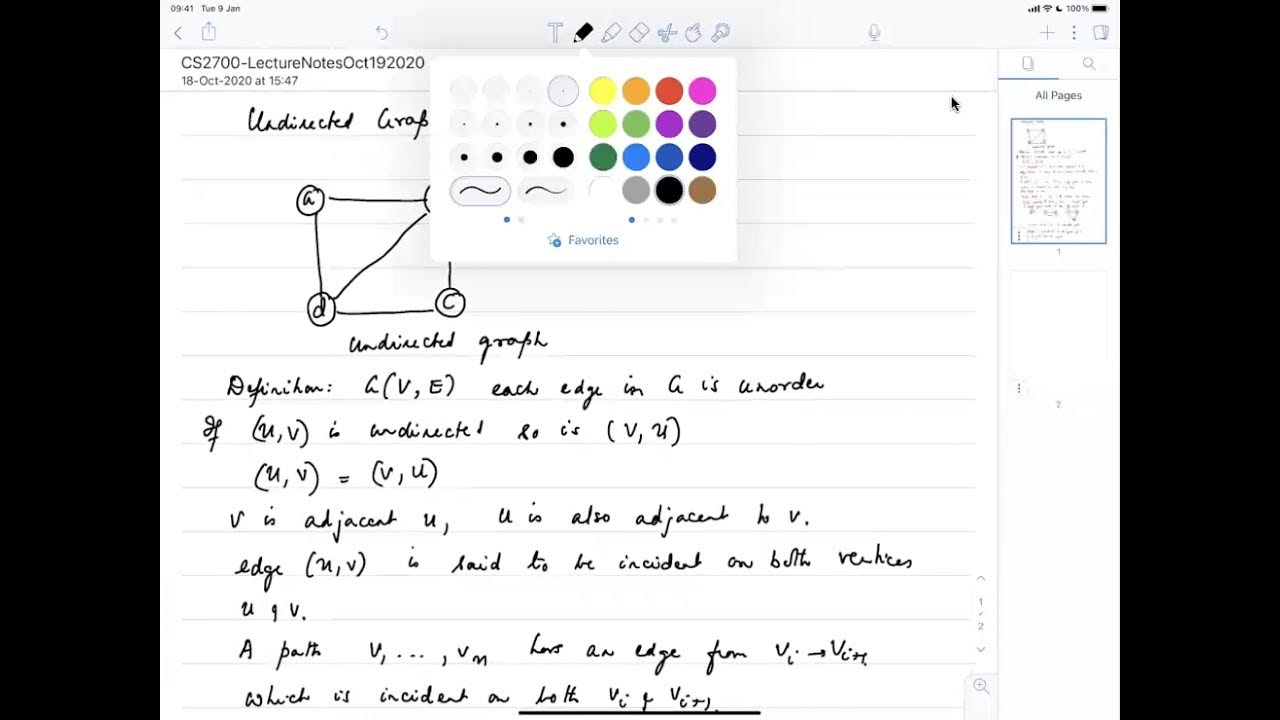 09:41 Tue 9 Jan
100%
CS2700-LectureNotesOct192020
18-Oct-2020 at 15:47
All Pages
Favorites
1
2
1
2
Undirected Grap
a
d
c
undirected graph
Definition: G(V, E) each edge in G is unorder
If (u,v) is undirected so is (v,u)
(u,v) = (v,u)
v is adjacent u, u is also adjacent to v.
edge (u,v) is said to be incident on both vertices
u & v.
A path v, ..., vn has an edge from vi → vi+1
which is incident on both vi & vi+1.